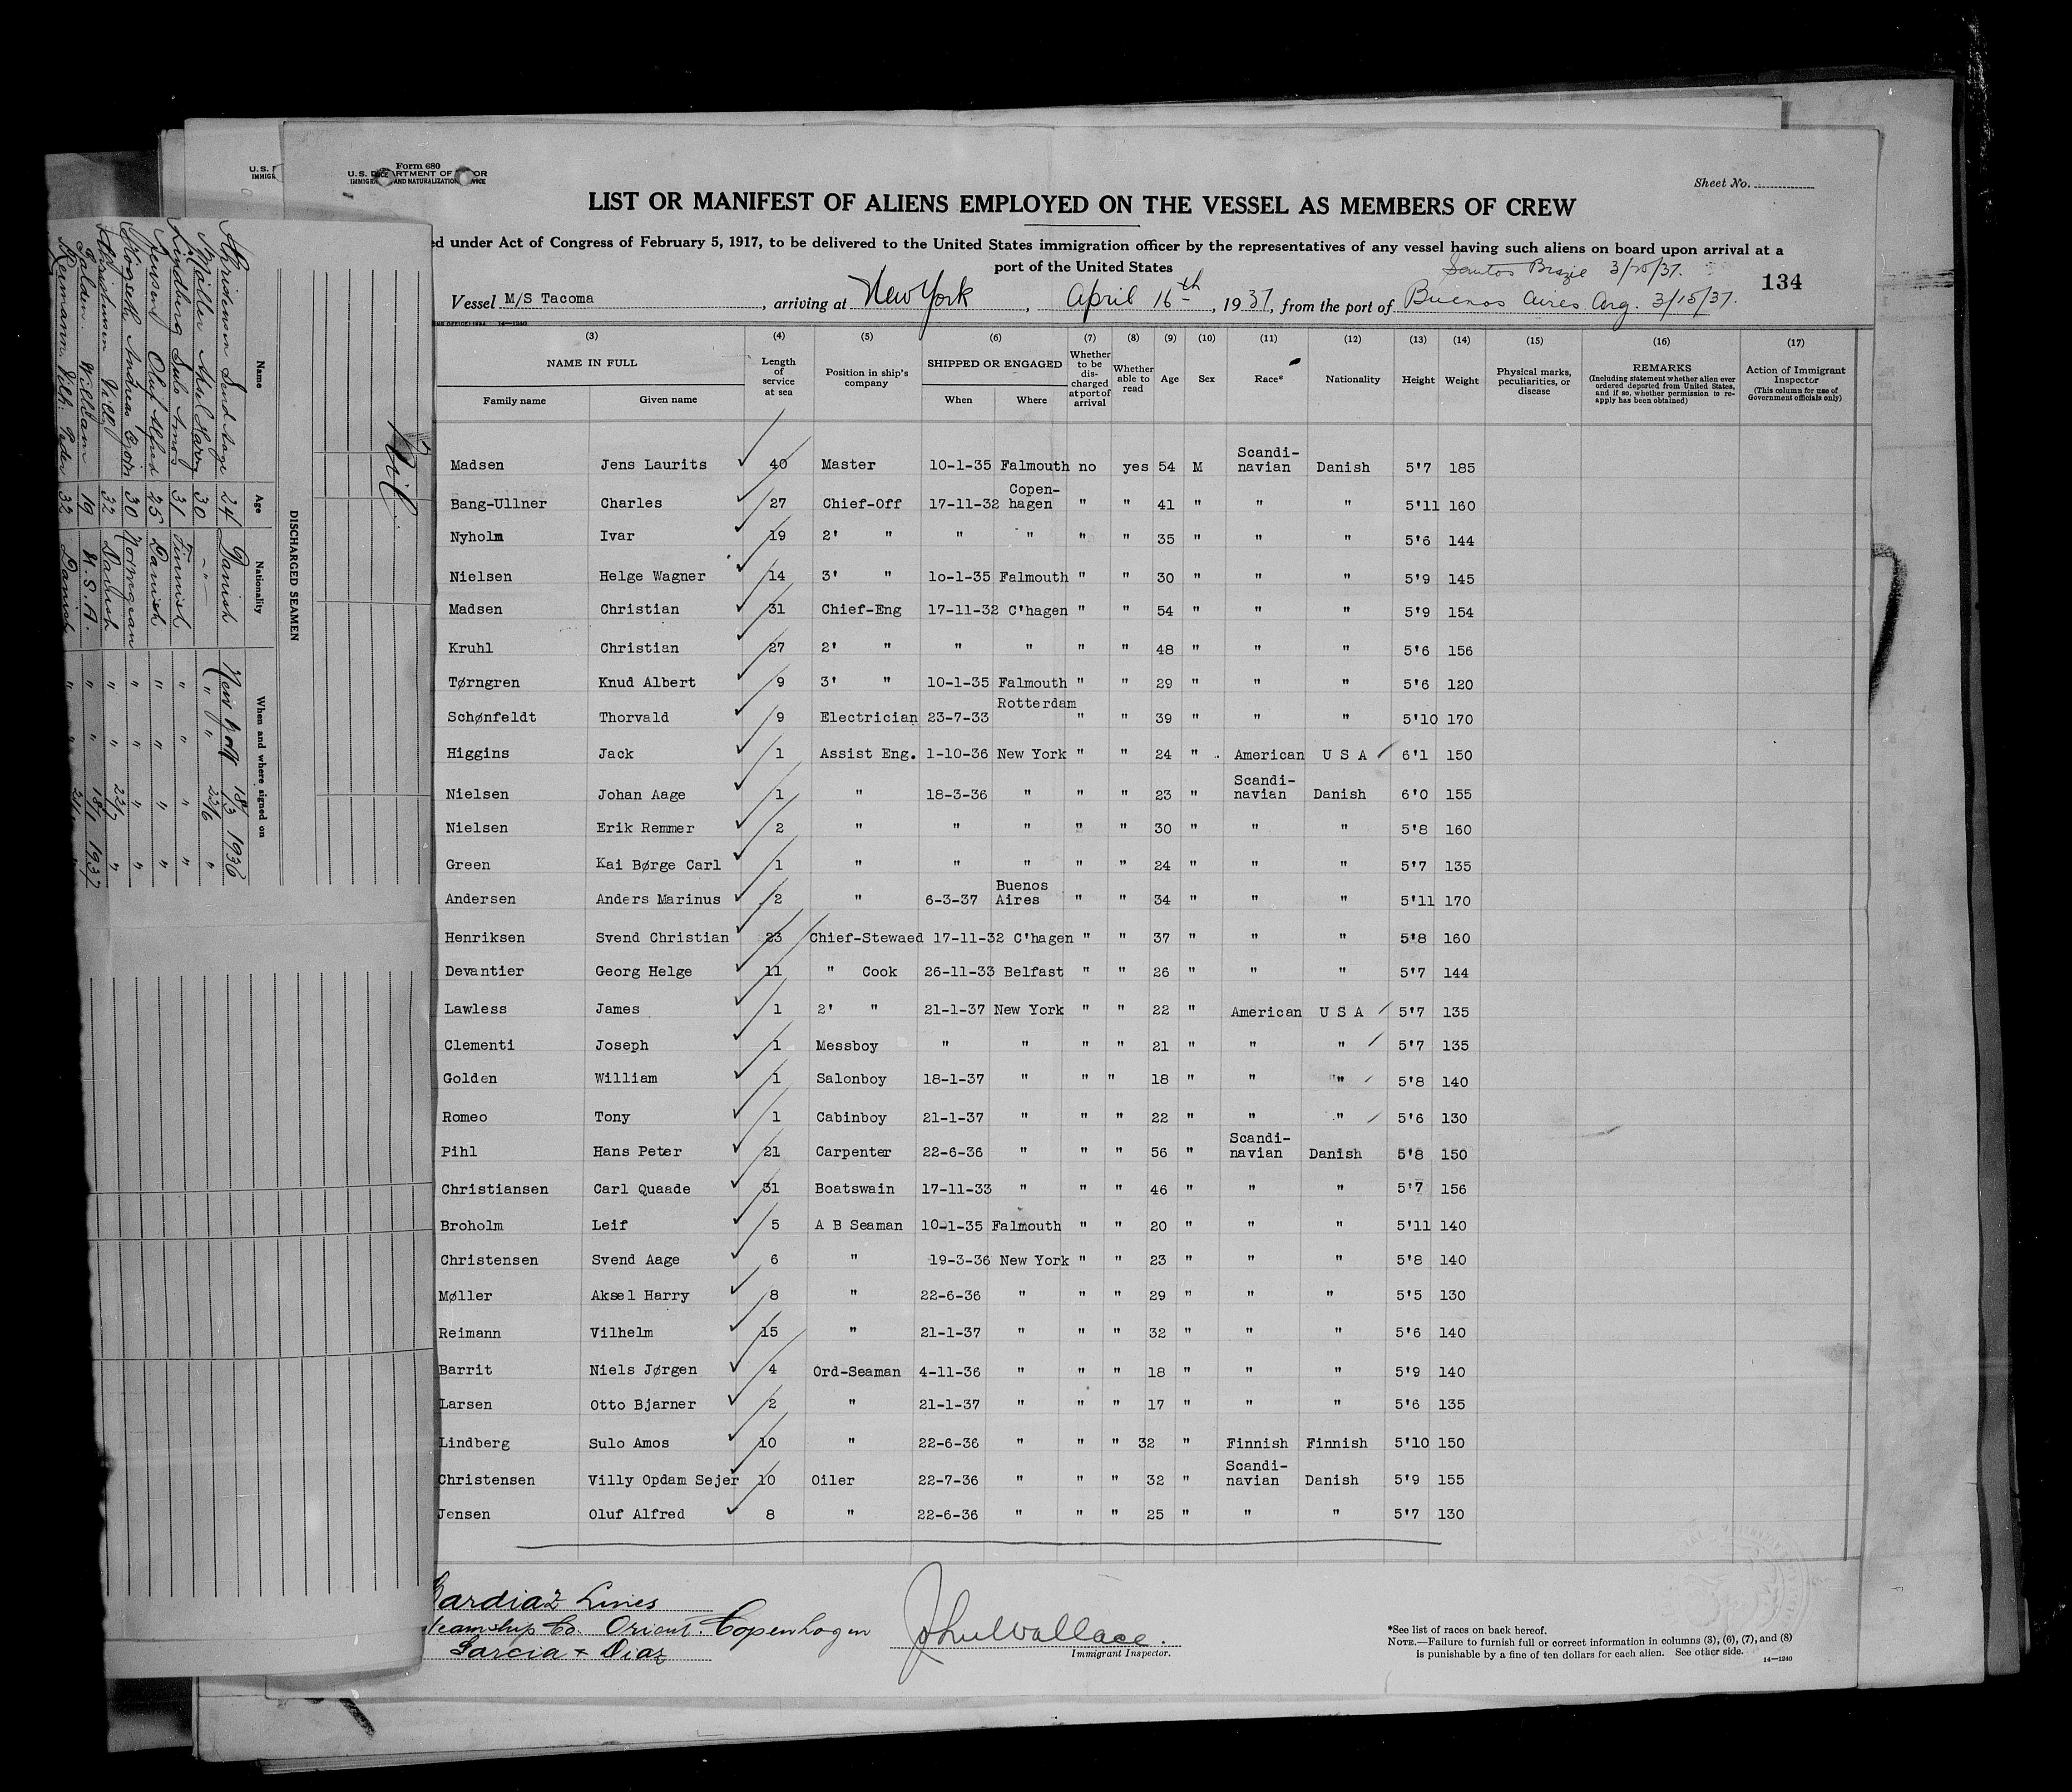 Form 680
U.S. DEPARTMENT OF LABOR
IMMIGRATION AND NATURALIZATION SERVICE
Sheet No.
LIST OR MANIFEST OF ALIENS EMPLOYED ON THE VESSEL AS MEMBERS OF CREW
ed under Act of Congress of February 5, 1917, to be delivered to the United States immigration officer by the representatives of any vessel having such aliens on board upon arrival at a
port of the United States
Santos Brazil 3/20/37.
134
Vessel M/S Tacoma, arriving at New York, April 16th, 1937, from the port of Buenos Aires Arg. 3/15/37.
(3) (4) (5) (6) (7) (8) (9) (10) (11) (12) (13) (14) (15) (16) (17)
NAME IN FULL Family name Given name Length of service at sea Position in ship's company SHIPPED OR ENGAGED When Where Whether to be discharged at port of arrival Whether able to read Age Sex Race* Nationality Height Weight Physical marks, peculiarities, or disease REMARKS (Including statement whether alien ever ordered deported from United States, and if so, whether permission to reapply has been obtained) Action of Immigrant Inspector (This column for use of Government officials only)
Madsen Jens Laurits 40 Master 10-1-35 Falmouth no yes 54 M Scandi-navian Danish 5'7 185
Bang-Ullner Charles 27 Chief-Off 17-11-32 Copen-hagen " " 41 " " " 5'11 160
Nyholm Ivar 19 2' " " " " " 35 " " " 5'6 144
Nielsen Helge Wagner 14 3' " 1o-1-35 Falmouth " " 30 " " " 5'9 145
Madsen Christian 31 Chief-Eng 17-11-32 C'hagen " " 54 " " " 5'9 154
Kruhl Christian 27 2' " " " " " 48 " " " 5'6 156
Tørngren Knud Albert 9 3' " 10-1-35 Falmouth " " 29 " " " 5'6 120
Schønfeldt Thorvald 9 Electrician 23-7-33 Rotterdam " " 39 " " " 5'10 170
Higgins Jack 1 Assist Eng. 1-10-36 New York " " 24 " American U S A 6'1 150
Nielsen Johan Aage 1 " 18-3-36 " " " 23 " Scandi-navian Danish 6'0 155
Nielsen Erik Remmer 2 " " " " " 30 " " " 5'8 160
Green Kai Børge Carl 1 " " " " " 24 " " " 5'7 135
Andersen Anders Marinus 2 " 6-3-37 Buenos Aires " " 34 " " " 5'11 170
Henriksen Svend Christian 23 Chief-Stewaed 17-11-32 C'hagen " " 37 " " " 5'8 160
Devantier Georg Helge 11 " Cook 26-11-33 Belfast " " 26 " " " 5'7 144
Lawless James 1 2' " 21-1-37 New York " " 22 " American U S A 5'7 135
Clementi Joseph 1 Messboy " " " " 21 " " " 5'7 135
Golden William 1 Salonboy 18-1-37 " " " 18 " " " 5'8 140
Romeo Tony 1 Cabinboy 21-1-37 " " " 22 " " " 5'6 130
Pihl Hans Peter 21 Carpenter 22-6-36 " " " 56 " Scandi-navian Danish 5'8 150
Christiansen Carl Quaade 31 Boatswain 17-11-33 " " " 46 " " " 5'7 156
Broholm Leif 5 A B Seaman 10-1-35 Falmouth " " 20 " " " 5'11 140
Christensen Svend Aage 6 " 19-3-36 New York " " 23 " " " 5'8 140
Møller Aksel Harry 8 " 22-6-36 " " " 29 " " " 5'5 130
Reimann Vilhelm 15 " 21-1-37 " " " 32 " " " 5'6 140
Barrit Niels Jørgen 4 Ord-Seaman 4-11-36 " " " 18 " " " 5'9 140
Larsen Otto Bjarner 2 " 21-1-37 " " " 17 " " " 5'6 135
Lindberg Sulo Amos 10 " 22-6-36 " " " 32 " Finnish Finnish 5'10 150
Christensen Villy Opdam Sejer 10 Oiler 22-7-36 " " " 32 " Scandi-navian Danish 5'9 155
Jensen Oluf Alfred 8 " 22-6-36 " " " 25 " " " 5'7 130
Gardiaz Lines
Steamship Co. Orient. Copenhagen
Garcia + Diaz
John Wallace.
Immigrant Inspector.
*See list of races on back hereof.
NOTE.—Failure to furnish full or correct information in columns (3), (6), (7), and (8)
is punishable by a fine of ten dollars for each alien. See other side.
14—1240
DISCHARGED SEAMEN
Name Age Nationality When and where signed on
Christensen Svend Aage 24 Danish New York 18/3 1936
Møller Aksel Harry 30 " " " 22/6 "
Lindberg Sulo Amos 31 Finnish " " " "
Jensen Oluf Alfred 25 Danish " " " "
Andreas 30 Norwegian " " " "
Christensen Villy 32 Danish " " 22/7 "
Golden. William 19 U.S.A. " " 18/1 1937
Reimann. Vilh. Peder 32 Danish " " 21/1 "